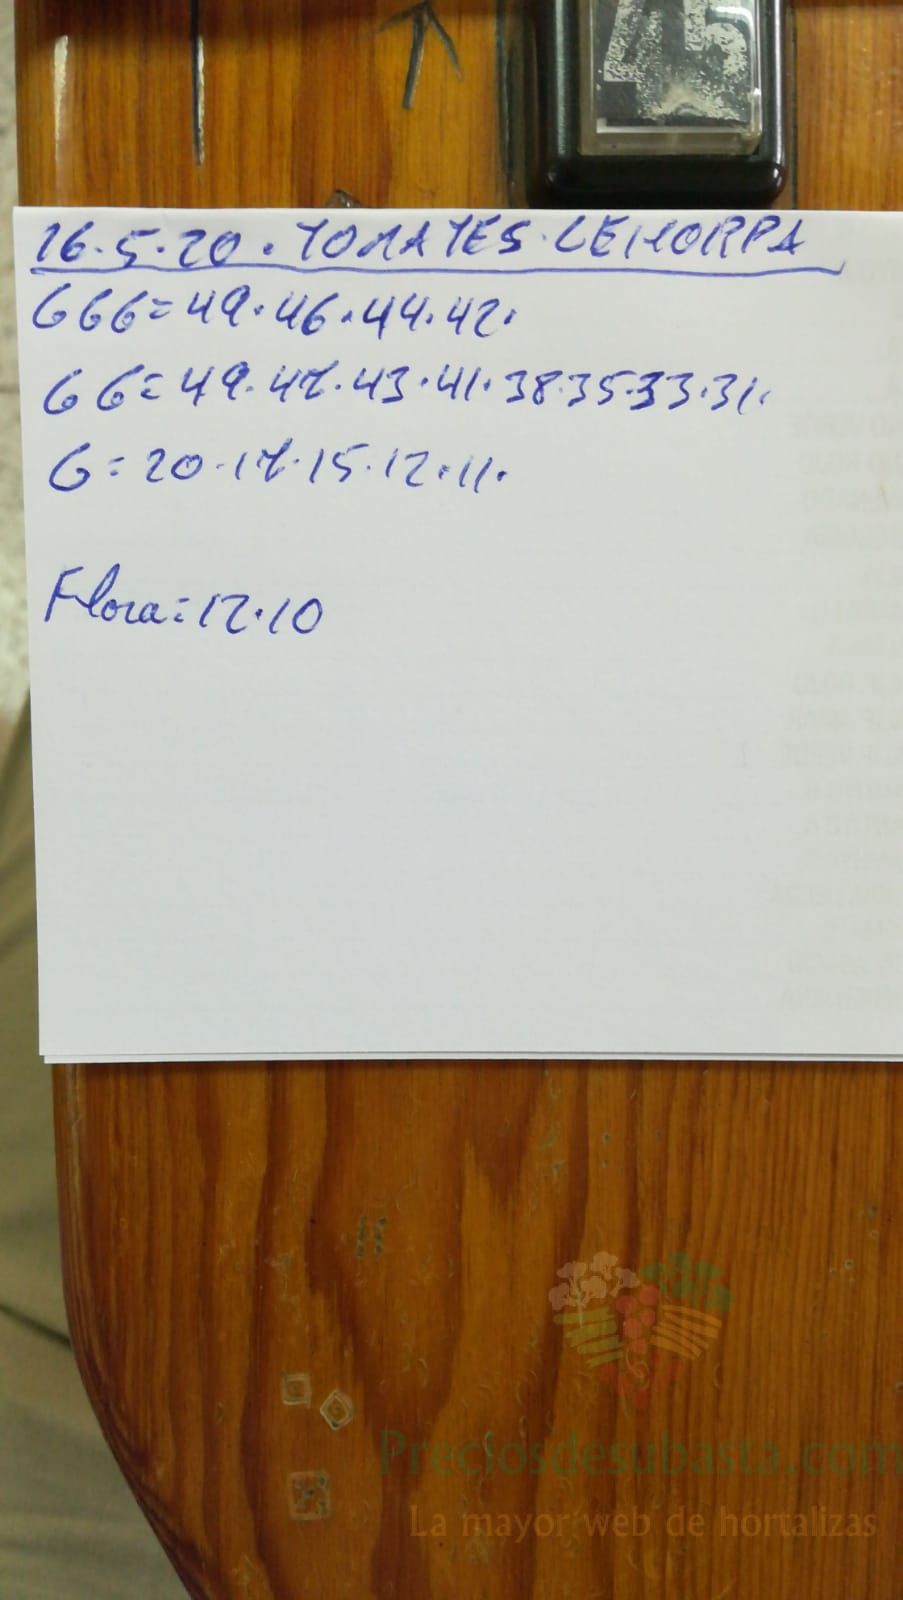 45
16.5.20. TOMATES. CEHORPA
GGG=49.46.44.42.
GG=49.47.43.41.38.35.33.31.
G=20.17.15.12.11.
Flora=12.10
Preciosdesubasta.com
La mayor web de hortalizas